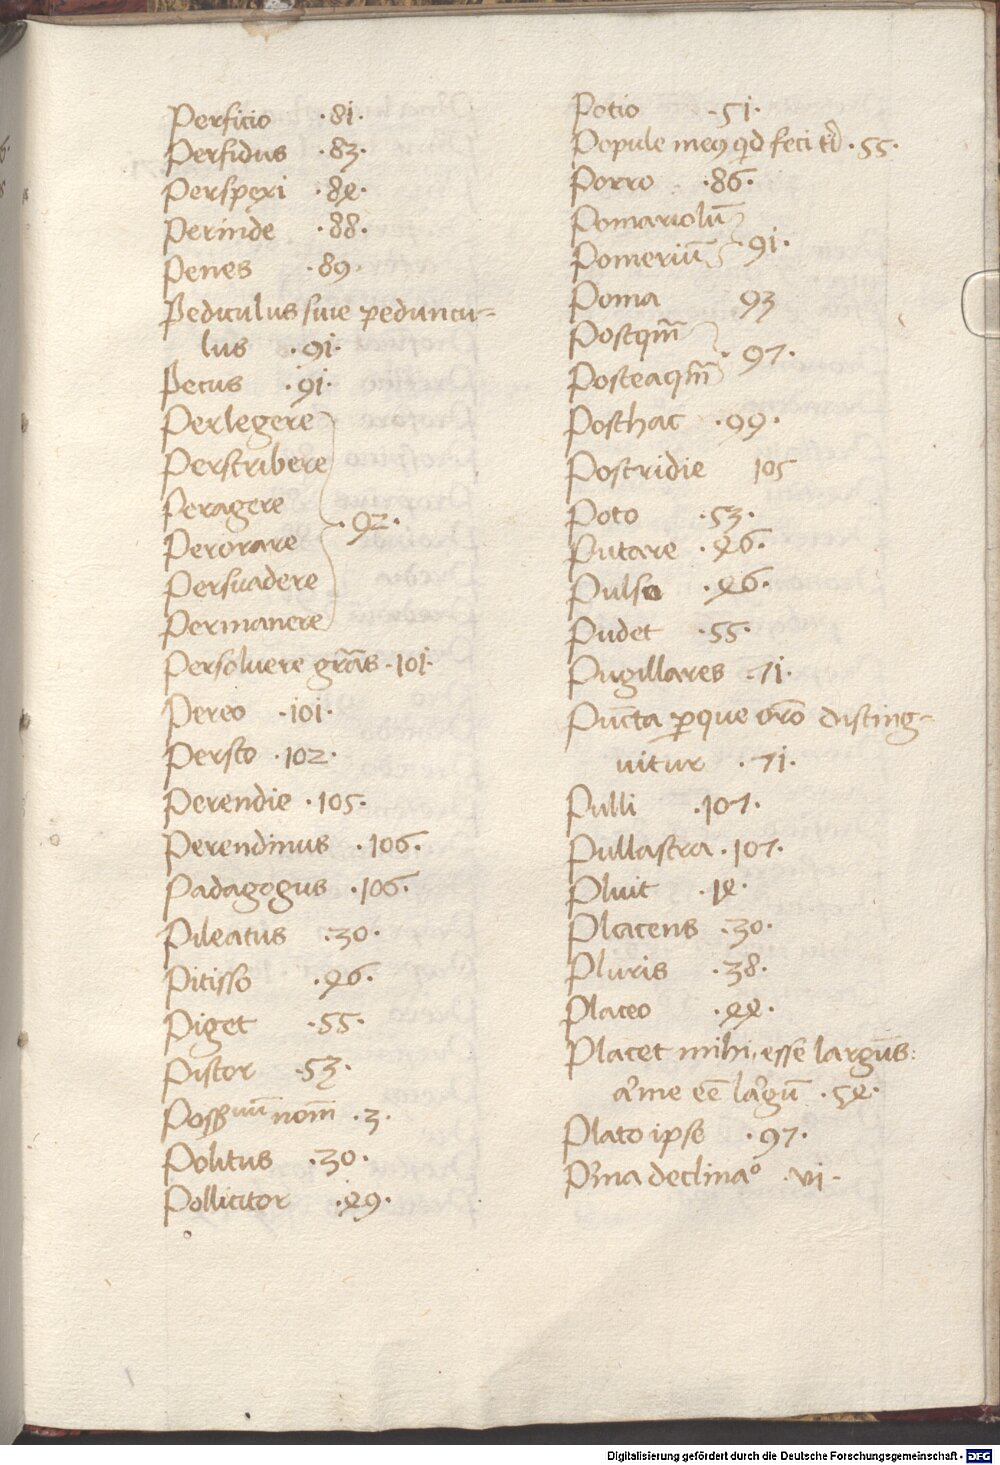 Perficio ·81·
Perfidus ·83·
Perspexi ·84·
Perinde ·88·
Penes ·89·
Pediculus siue peduncu-
lus ·91·
Pecus ·91·
Perlegere
Perscribere
Peragere
Perorare ·92·
Persuadere
Permanere
Persoluere gr̄as ·101·
Pereo ·101·
Persto ·102·
Perendie ·105·
Perendinus ·106·
Padagogus ·106·
Pileatus ·30·
Pitisso ·46·
Piget ·55·
Pistor ·53·
nom̄ ·3·
Politus ·30·
Pollicitor ·49·
Potio ·51·
Popule meꝯ qd feci ti ·55·
Porro ·86·
Pomariolū
Pomeriū ·91·
Poma 93
Postqm̄
Posteaqm̄ ·97·
Posthac ·99·
Postridie 105
Poto ·53·
Putare ·46·
Pulso ·46·
Pudet ·55·
Pugillares ·71·
Pūcta ꝑ que orō disting-
uitur ·71·
Pulli ·107·
Pullastra ·107·
Pluit ·14·
Placens ·30·
Pluris ·38·
Placeo ·44·
Placet mihi esse largus:
me eē largū ·54·
Plato ipse ·97·
Pma declinaᵒ ·vi·
Digitalisierung gefördert durch die Deutsche Forschungsgemeinschaft - DFG